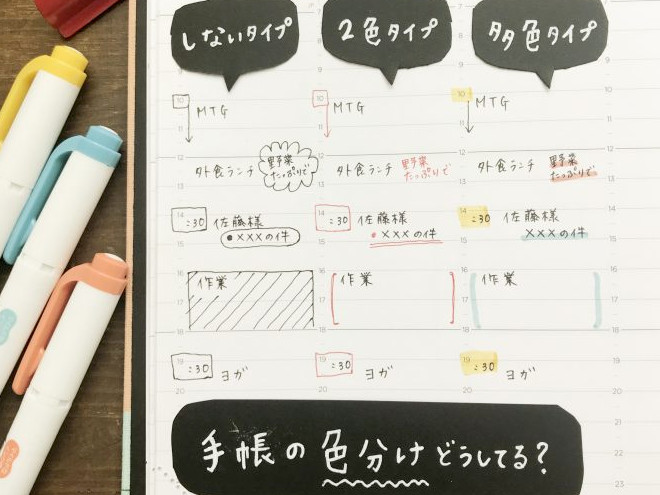 しないタイプ
2色タイプ
多色タイプ
10
MTG
11
12
外食ランチ
野菜
たっぷりで
13
14
:30
佐藤様
•×××の件
15
16
作業
17
18
19
:30
ヨガ
20
10
MTG
11
12
外食ランチ
野菜
たっぷりで
13
14
:30
佐藤様
•×××の件
15
16
作業
17
18
19
:30
ヨガ
20
10
MTG
11
12
外食ランチ
野菜
たっぷりで
13
14
:30
佐藤様
×××の件
15
16
作業
17
18
19
:30
ヨガ
20
手帳の色分けどうしてる?